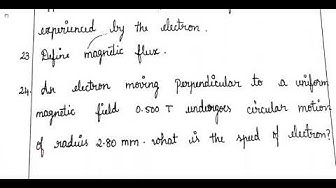 experienced by the electron.
23. Define magnetic flux.
24. An electron moving perpendicular to a uniform
magnetic field 0.500 T undergoes circular motion
of radius 2.80 mm. what is the speed of electron?